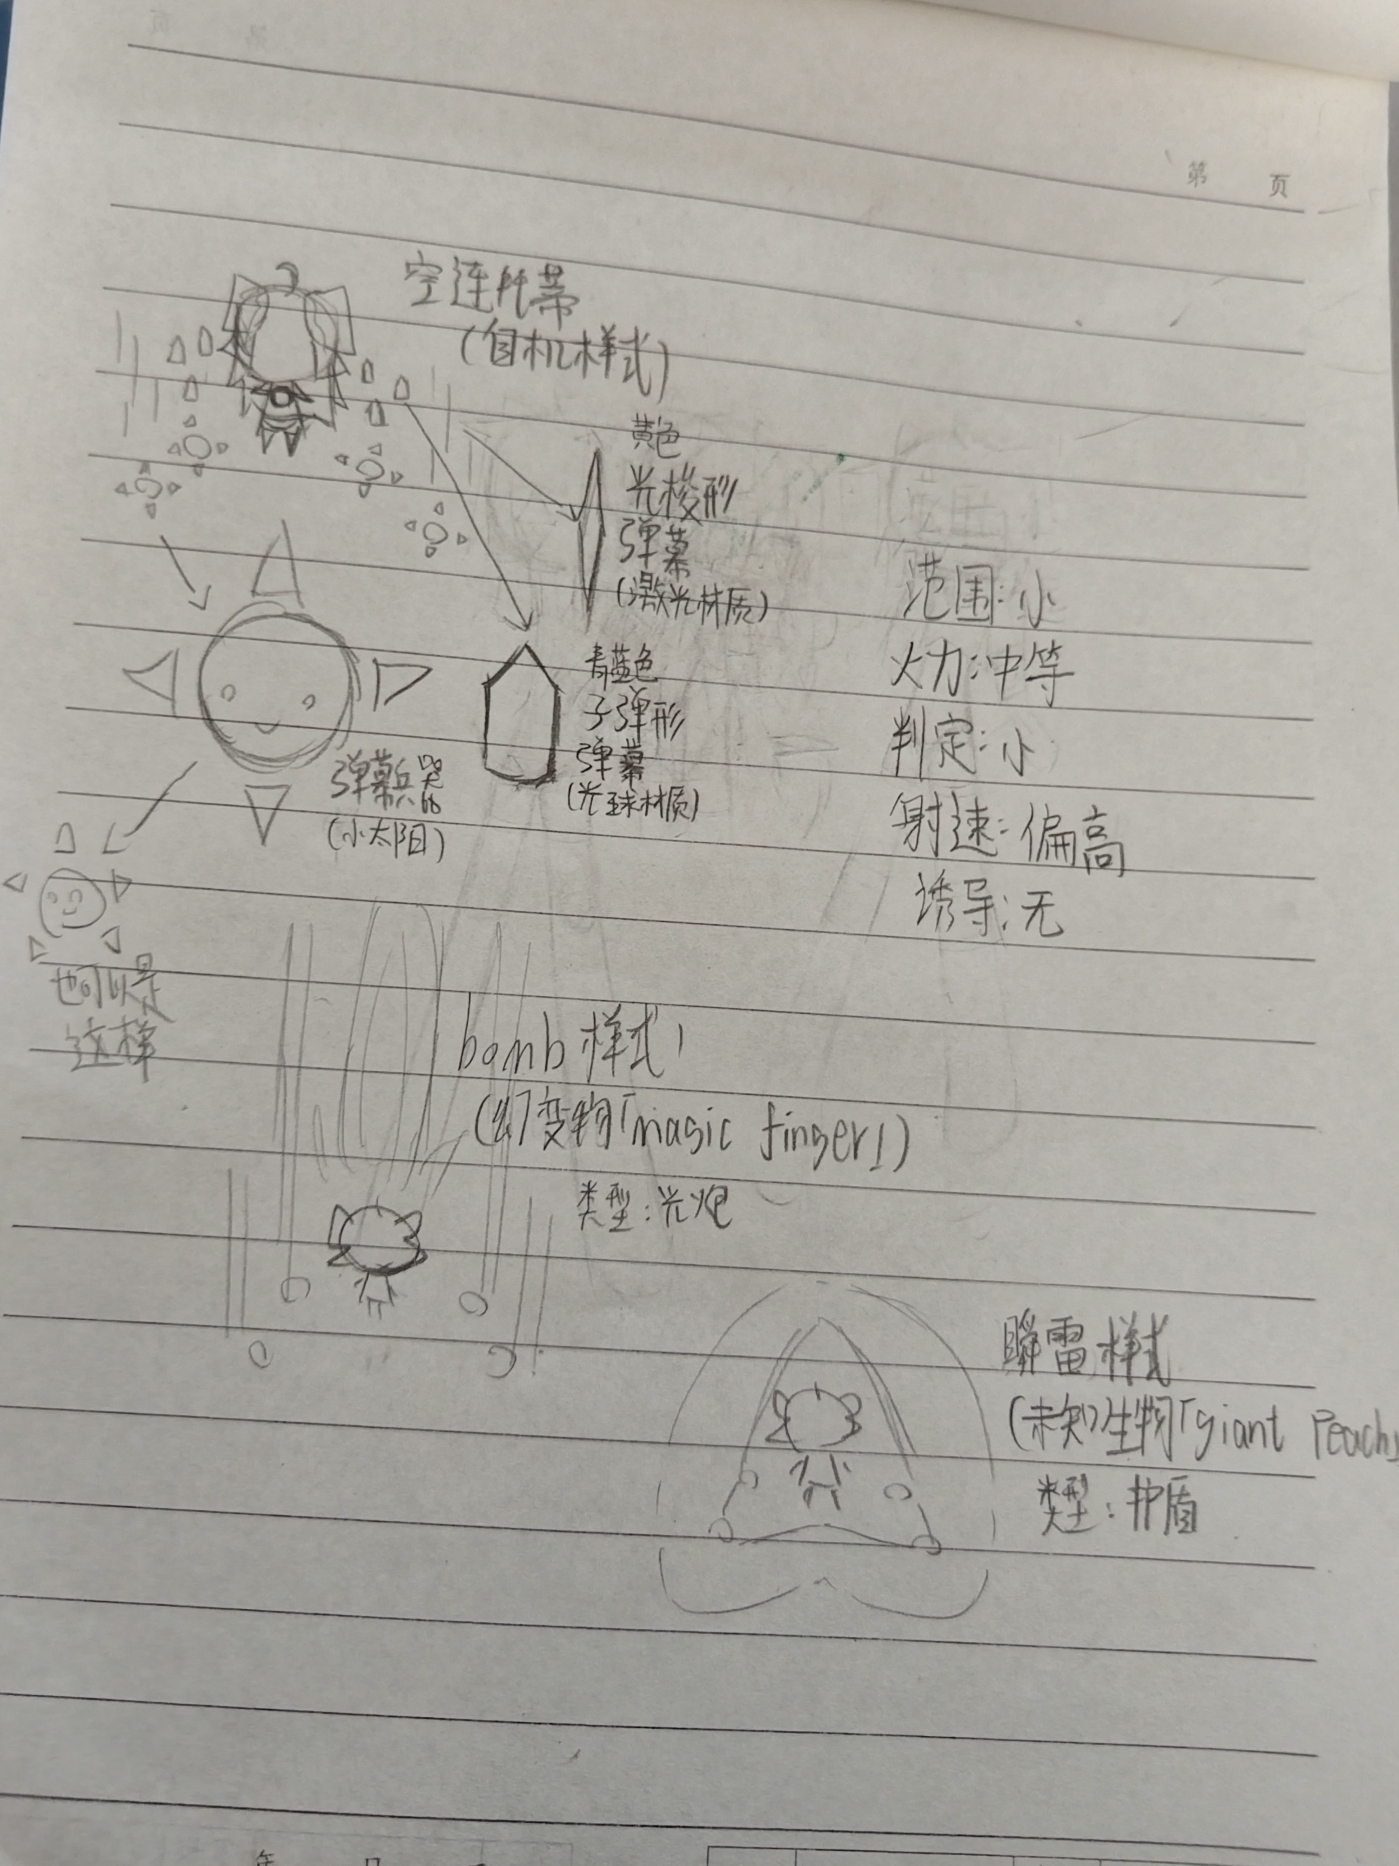 第 页
空连阡蒂
(自机样式)
黄色
光梭形
弹幕
(激光材质)
青蓝色
子弹形
弹幕
(光球材质)
弹幕兵器
(小太阳)
也可以是
这样
范围:小
火力:中等
判定:小
射速:偏高
诱导:无
bomb样式
(幻变物「magic finger」)
类型:光炮
瞬雷样式
(未知生物「giant Peach」
类型:护盾
年